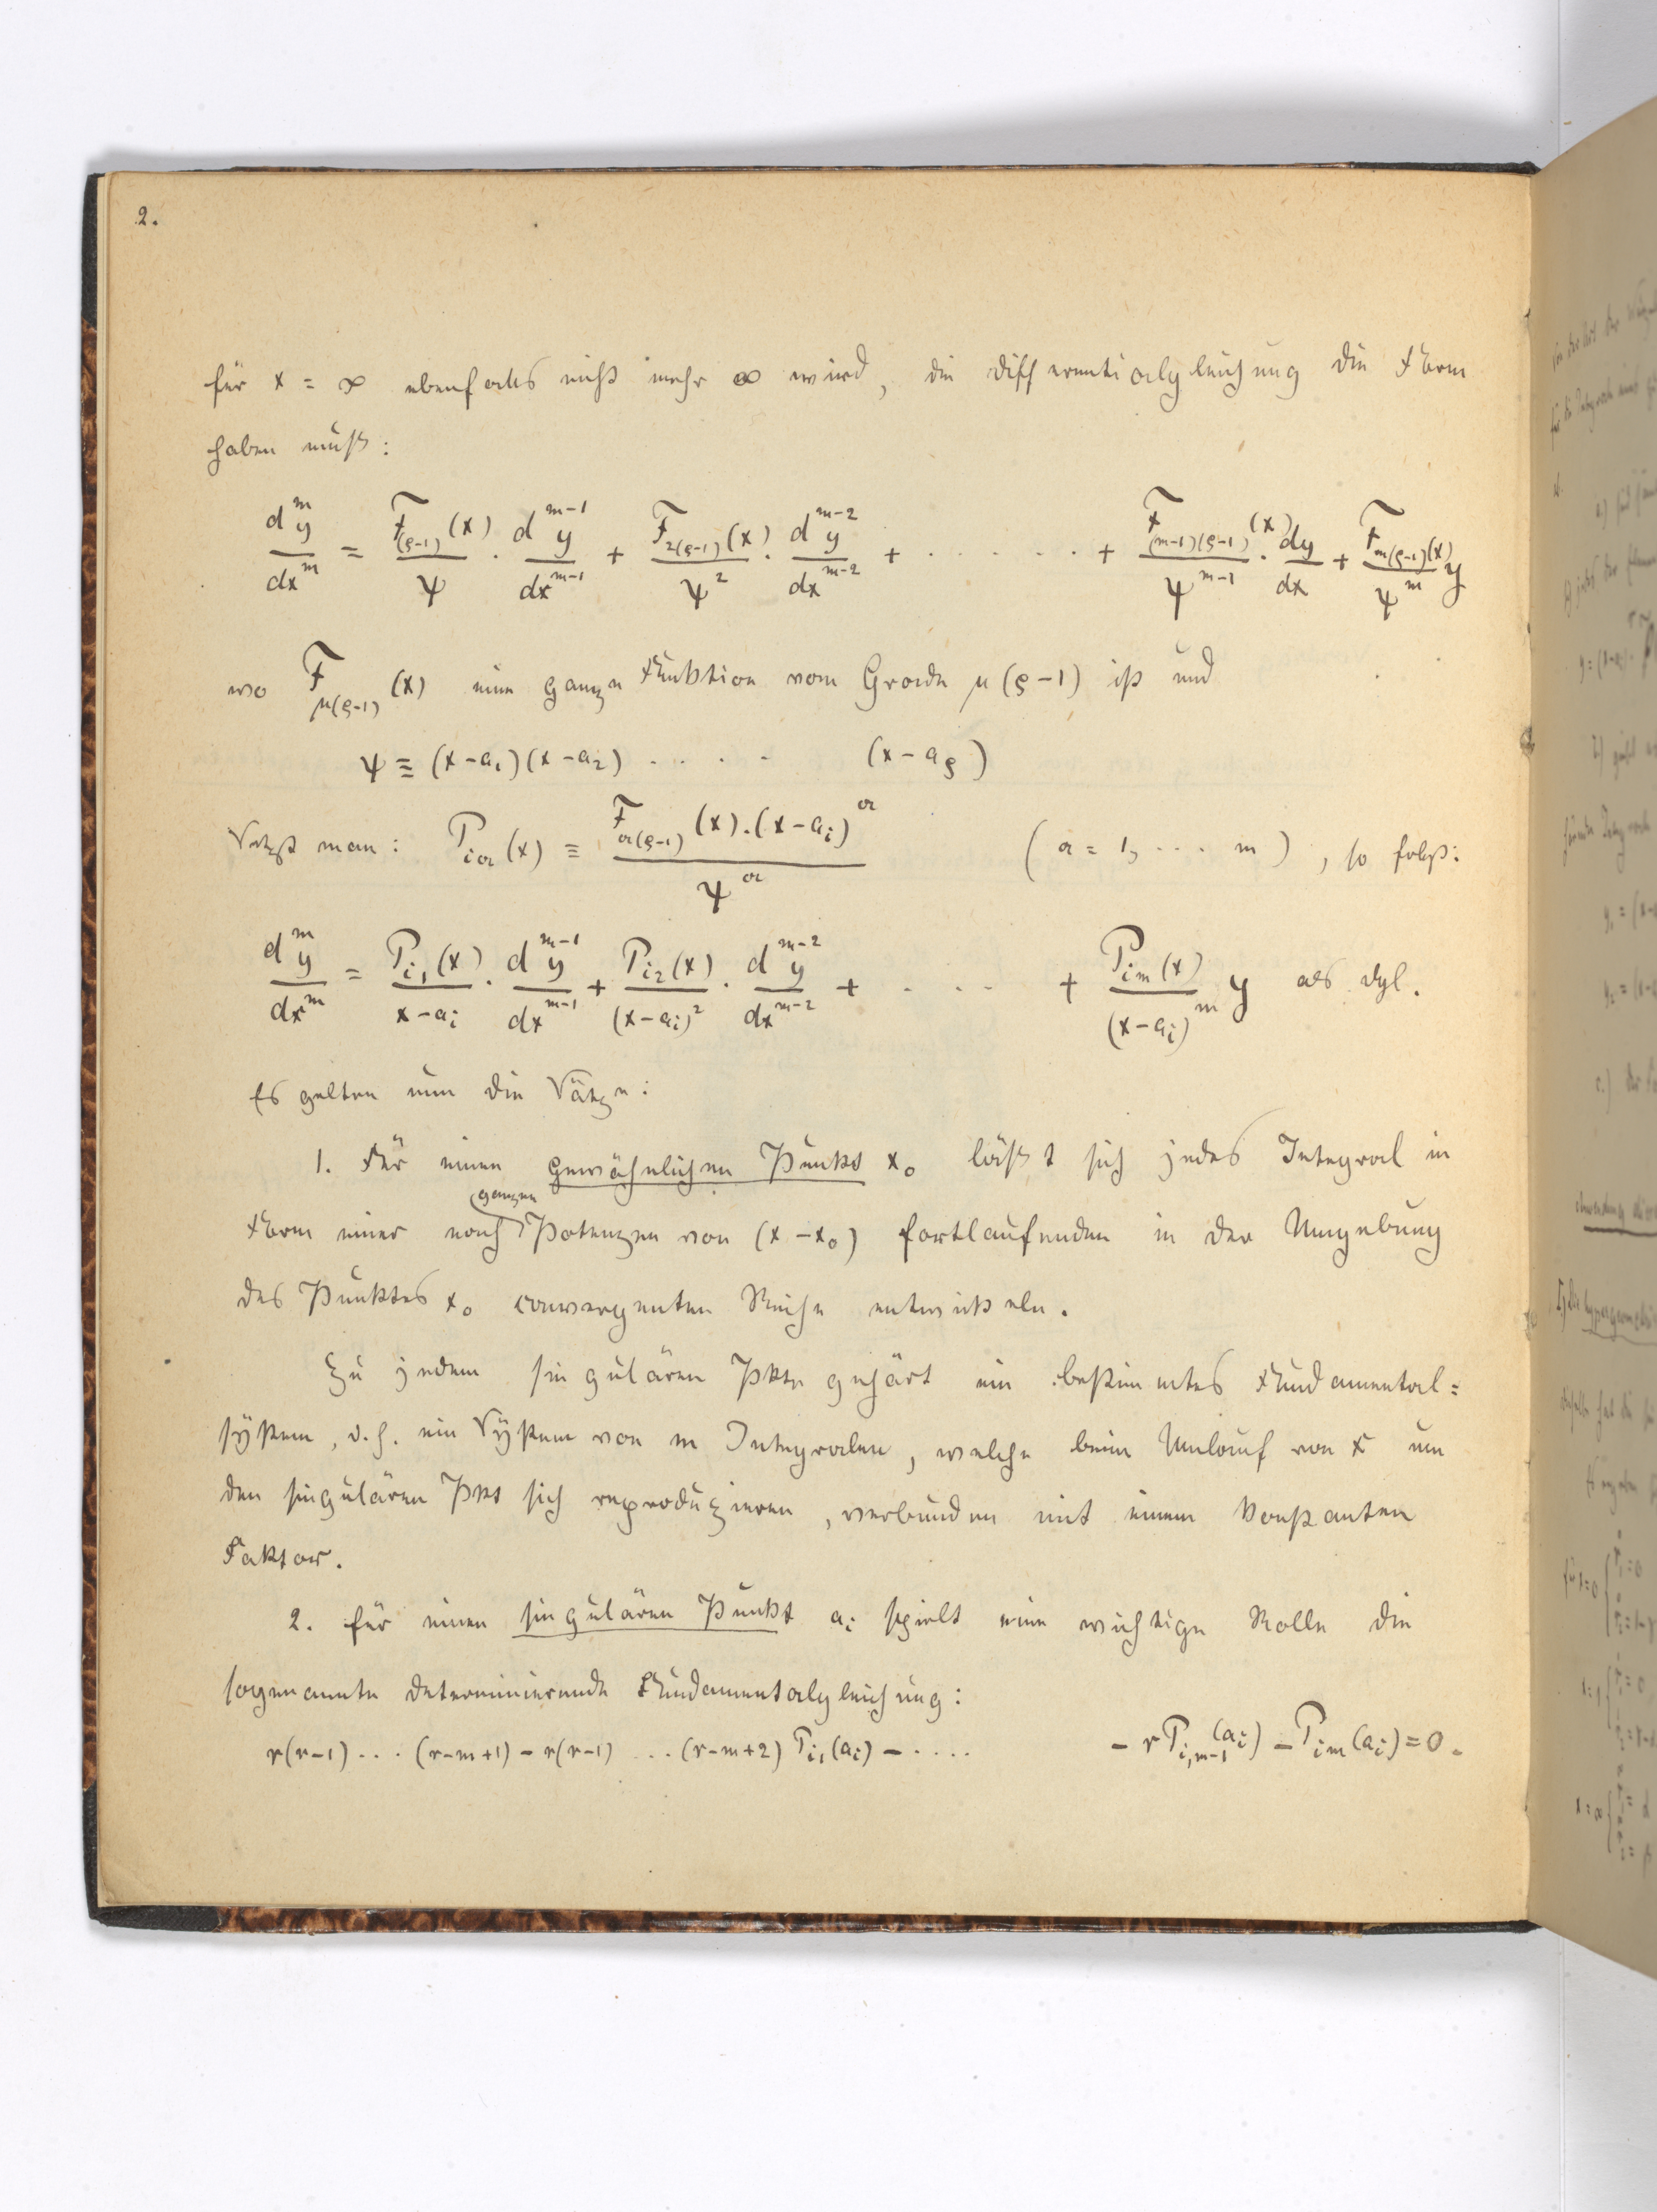 2.
für x = ∞ ebenfalls nicht mehr ∞ wird, die Differentialgleichung die Form
haben muß:
d^m y / dx^m = F_(ρ-1)(x) / ψ · d^(m-1) y / dx^(m-1) + F_2(ρ-1)(x) / ψ^2 · d^(m-2) y / dx^(m-2) + · · · · · · + F_(m-1)(ρ-1)(x) / ψ^(m-1) · dy / dx + F_m(ρ-1)(x) / ψ^m y
wo F_μ(ρ-1) (x) eine ganze Funktion vom Grade μ(ρ-1) ist und
ψ ≡ (x-a_1)(x-a_2) · · · · (x-a_ρ)
Setzt man: P_ia(x) ≡ F_a(ρ-1)(x).(x-a_i)^a / ψ^a (a = 1, ··· m), so folgt:
d^m y / dx^m = P_i1(x) / x-a_i · d^(m-1) y / dx^(m-1) + P_i2(x) / (x-a_i)^2 · d^(m-2) y / dx^(m-2) + · · · + P_im(x) / (x-a_i)^m y als dgl.
Es gelten nun die Sätze:
1. Für einen gewöhnlichen Punkt x_0 läßt sich jedes Integral in
Form einer nach ganzen Potenzen von (x-x_0) fortlaufenden in der Umgebung
des Punktes x_0 convergenten Reihe entwickeln.
Zu jedem singulären Pkte gehört ein bestimmtes Fundamental=
system, d.h. ein System von m Integralen, welche beim Umlauf von x um
den singulären Pkt sich reproduzieren, verbunden mit einem konstanten
Faktor.
2. für einen singulären Punkt a_i spielt eine wichtige Rolle die
sogenannte determinierende Fundamentalgleichung:
r(r-1)··· (r-m+1) - r(r-1) ··· (r-m+2) P_i1(a_i) - ···· - r P_i,m-1(a_i) - P_im(a_i) = 0.